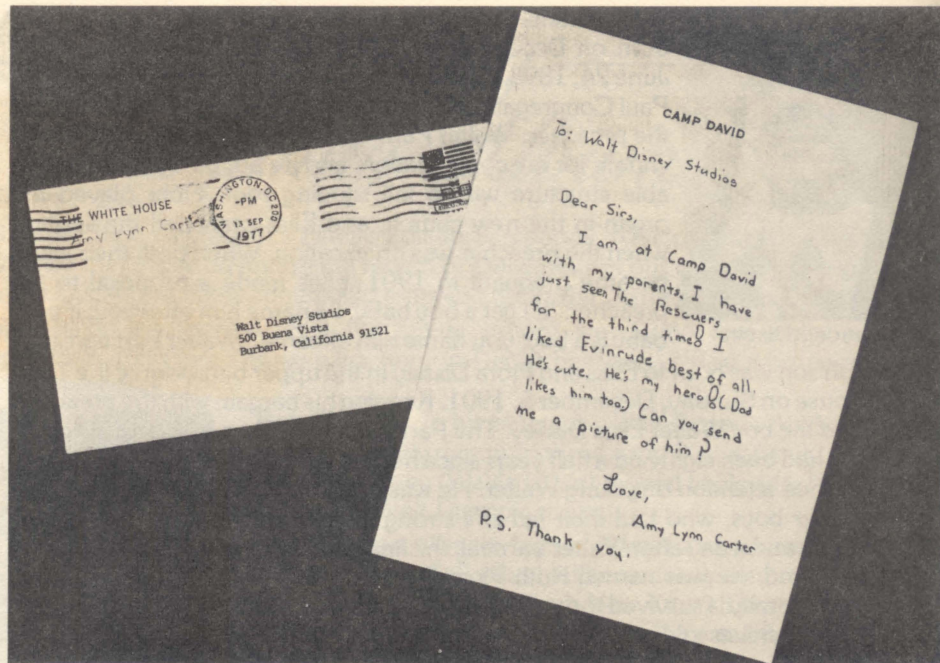 THE WHITE HOUSE
Amy Lynn Carter
WASHINGTON, DC 200
PM
13 SEP
1977
Walt Disney Studios
500 Buena Vista
Burbank, California 91521
CAMP DAVID
To: Walt Disney Studios
Dear Sirs,
I am at Camp David
with my parents. I have
just seen The Rescuers
for the third time! I
liked Evinrude best of all.
He's cute. He's my hero! (Dad
likes him too) Can you send
me a picture of him?
Love,
Amy Lynn Carter
P.S. Thank you.